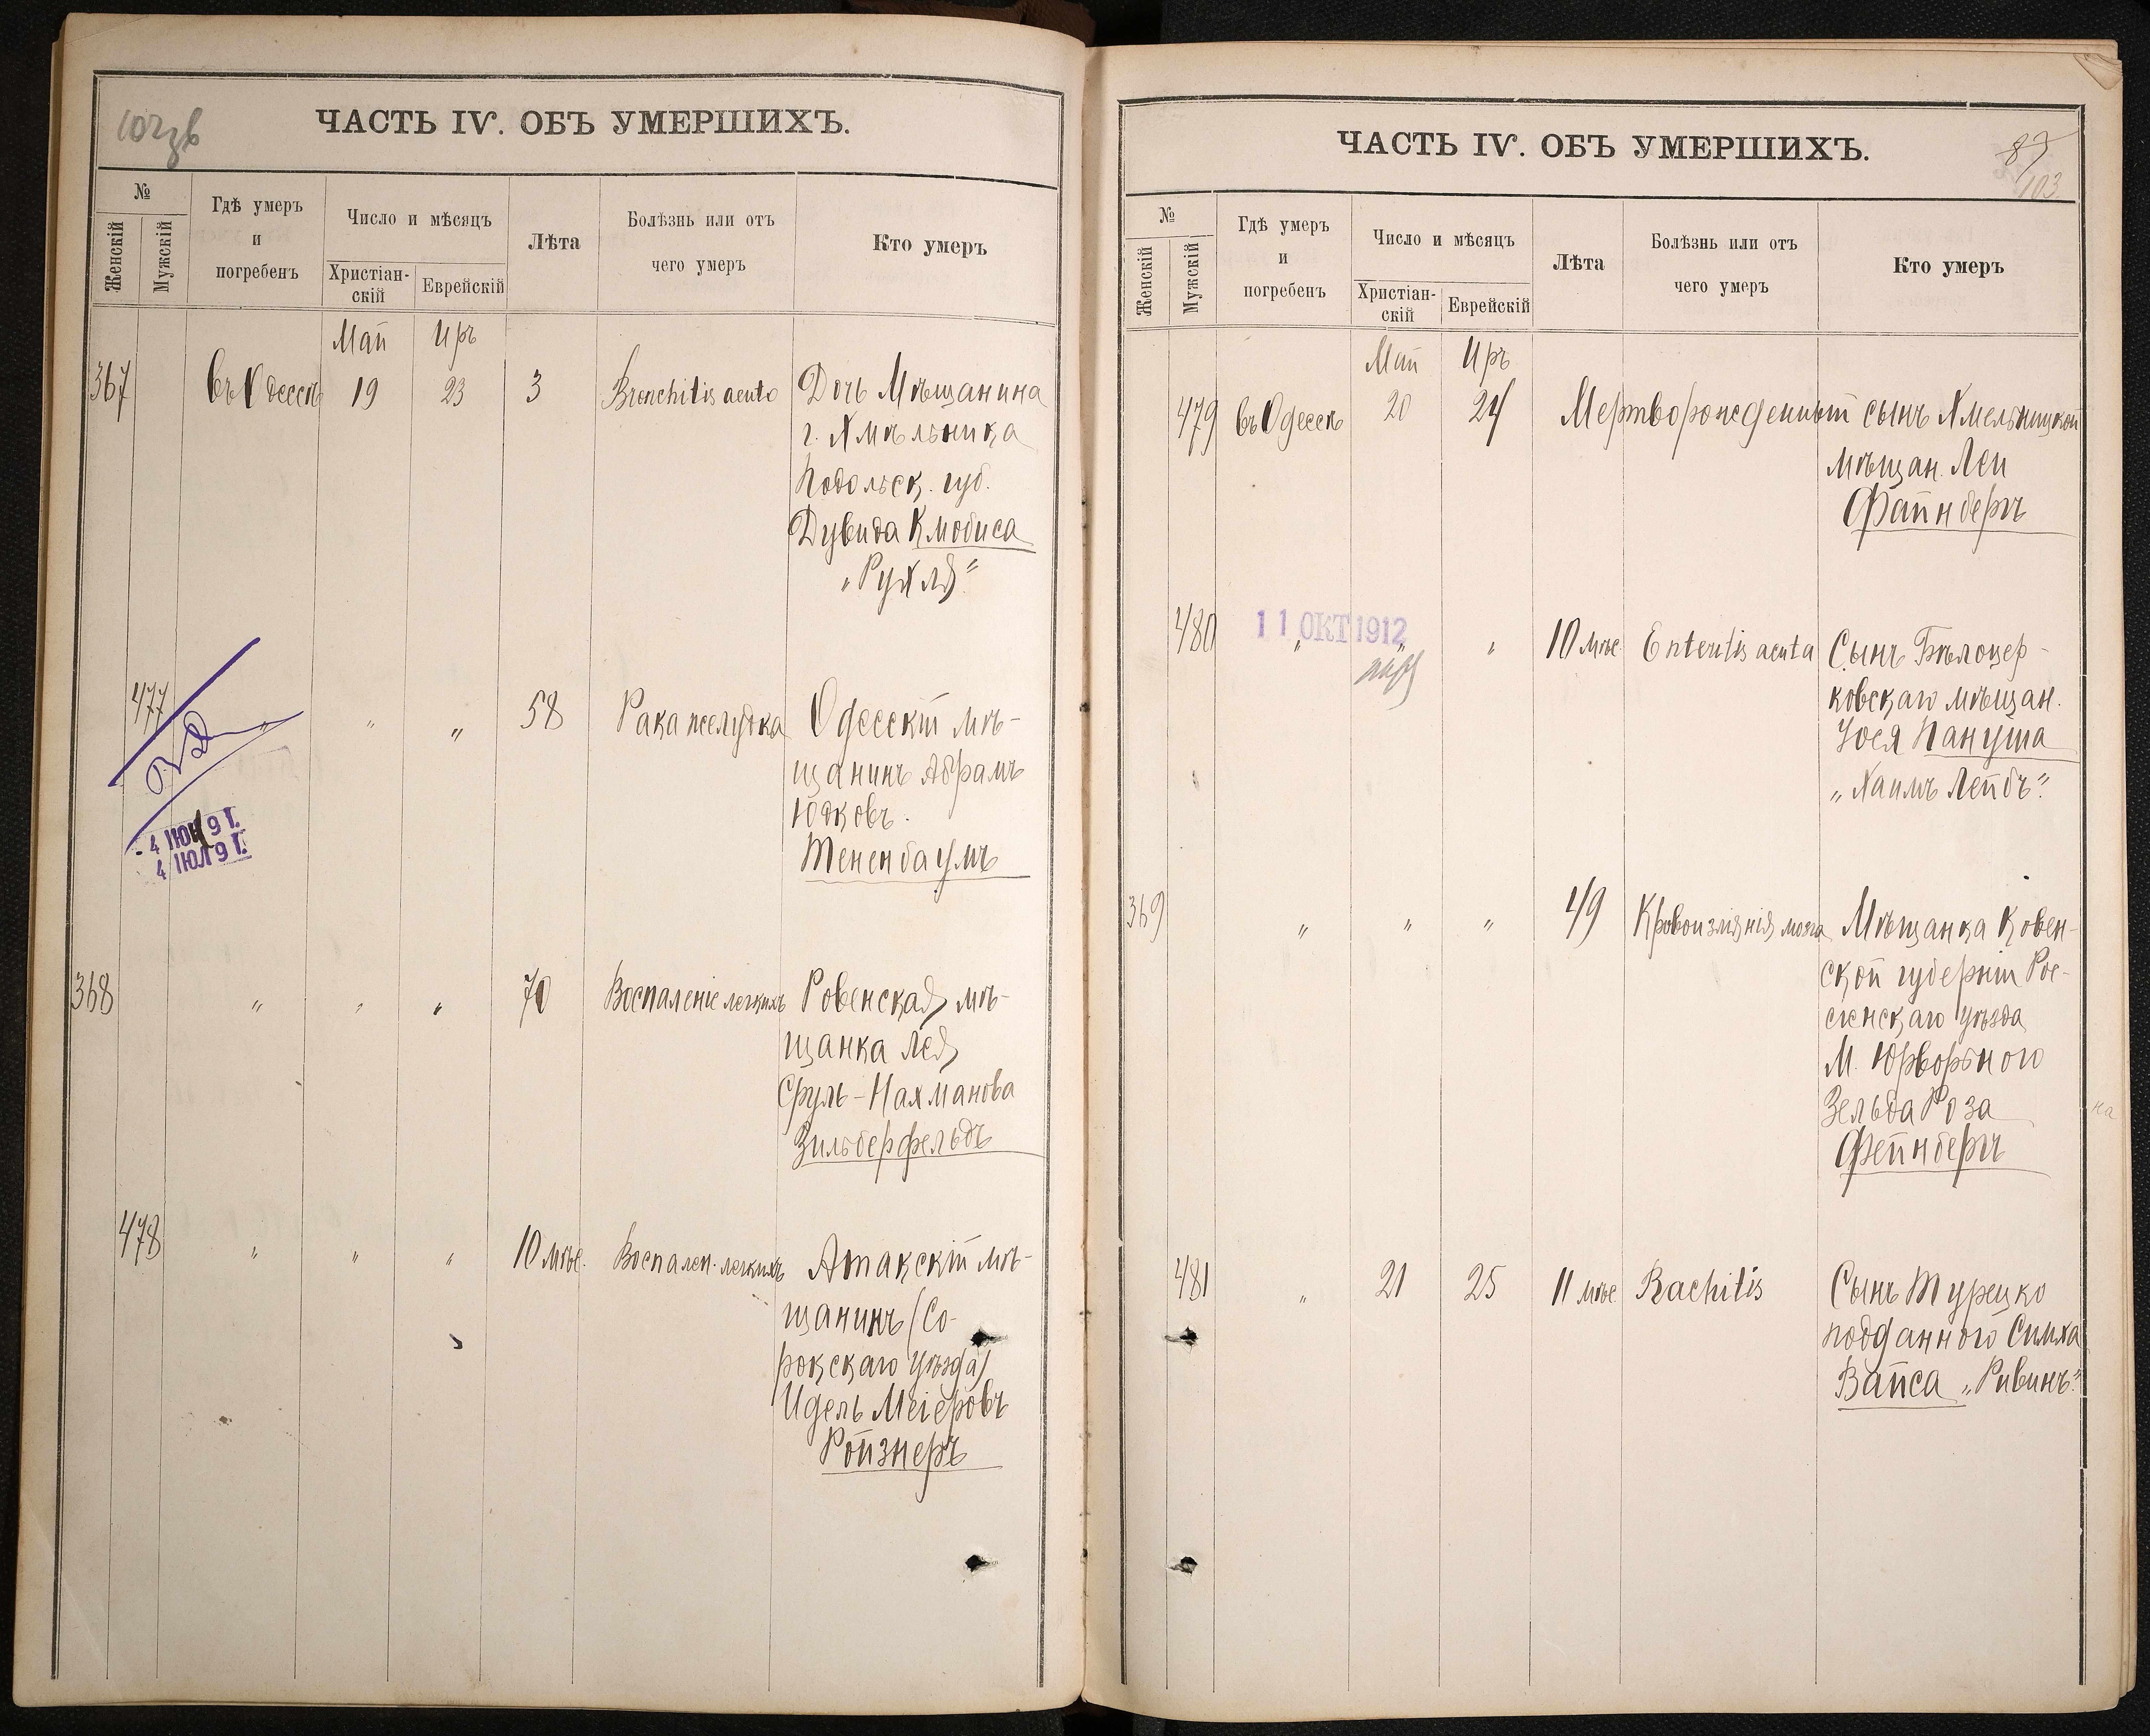 ЧАСТЬ IV. ОБЪ УМЕРШИХЪ.
№
Женскій
Мужскій
Гдѣ умеръ
и
погребенъ
Число и мѣсяцъ
Христіан-
скій
Еврейскій
Лѣта
Болѣзнь или отъ
чего умеръ
Кто умеръ
Май Иръ
367 въ Одессѣ 19 23 3 Bronchitis acuta Дочь Мѣщанина
г. Хмѣльника
Подольск. губ.
Дувида Кмобиса
„Рухля“
477 „ „ „ 58 Рака желудка Одесскій мѣ-
щанинъ Абрамъ
Юдковъ
Тененбаумъ
4 ИЮЛ 9 Г.
368 „ „ „ 70 Воспаленіе легкихъ Ровенская мѣ-
щанка Лея
Сруль-Нахманова
Зильберфельдъ
478 „ „ „ 10 мѣс. Воспален. легкихъ Атакскій мѣ-
щанинъ (Со-
рокскаго уѣзда)
Идель Меіеровъ
Ройзнеръ
ЧАСТЬ IV. ОБЪ УМЕРШИХЪ.
87
103
№
Женскій
Мужскій
Гдѣ умеръ
и
погребенъ
Число и мѣсяцъ
Христіан-
скій
Еврейскій
Лѣта
Болѣзнь или отъ
чего умеръ
Кто умеръ
Май Иръ
479 въ Одессѣ 20 24 Мертворожденный сынъ Хмельницкой
мѣщан. Леи
Файнбергъ
11 ОКТ 1912
480 „ „ „ 10 мѣс Enteritis acuta Сынъ Бѣлоцер-
ковскаго мѣщан.
Іося Пануша
„Хаимъ Лейбъ“.
369 „ „ „ 49 Кровоизліянія мозга Мѣщанка Ковен-
ской губерніи Рос-
сіенскаго уѣзда
М. Юрборкного
Зельда Роза
Фейнбергъ
на
481 „ 21 25 11 мѣс Rachitis Сынъ Турецко
подданного Симха
Вайса „Ривинъ“.